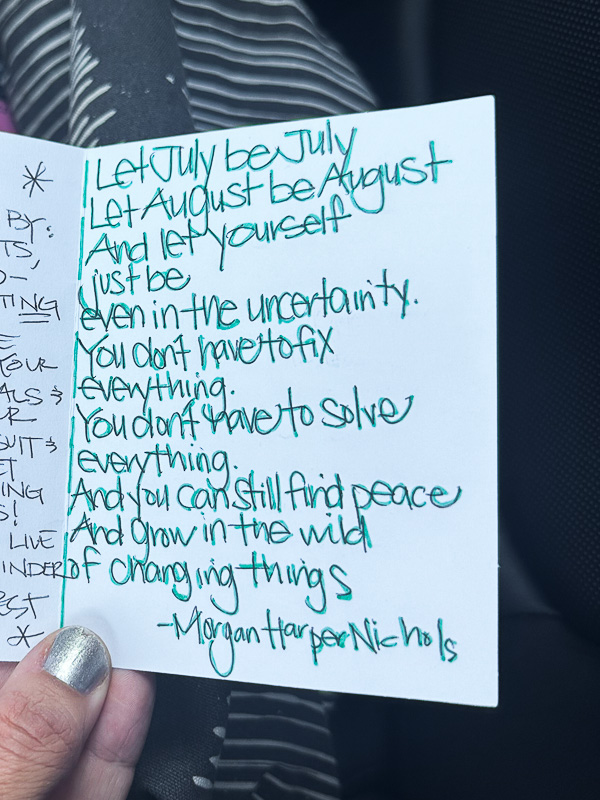 *
BY:
TS,
O-
TING
E
YOUR
ALS &
UR
SUIT &
ET
ING
S!
LIVE
INDER
EST
*
Let July be July
Let August be August
And let yourself
just be
even in the uncertainity.
You don't have to fix
everything.
You don't have to solve
everything.
And you can still find peace
And grow in the wild
of changing things
-Morgan Harper Nichols